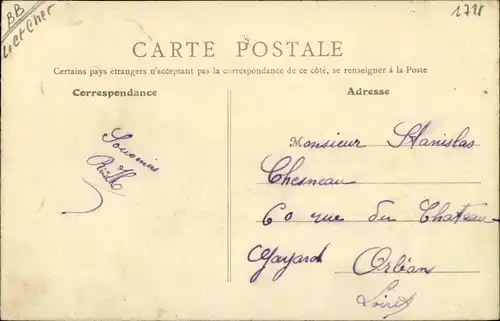 BB
L et Cher
1728
CARTE POSTALE
Certains pays étrangers n'acceptant pas la correspondance de ce côté, se renseigner à la Poste
Correspondance
Adresse
Souvenir
Monsieur Stanislas
Chesneau
60 rue du Chateau
Gayard Orléans
Loiret